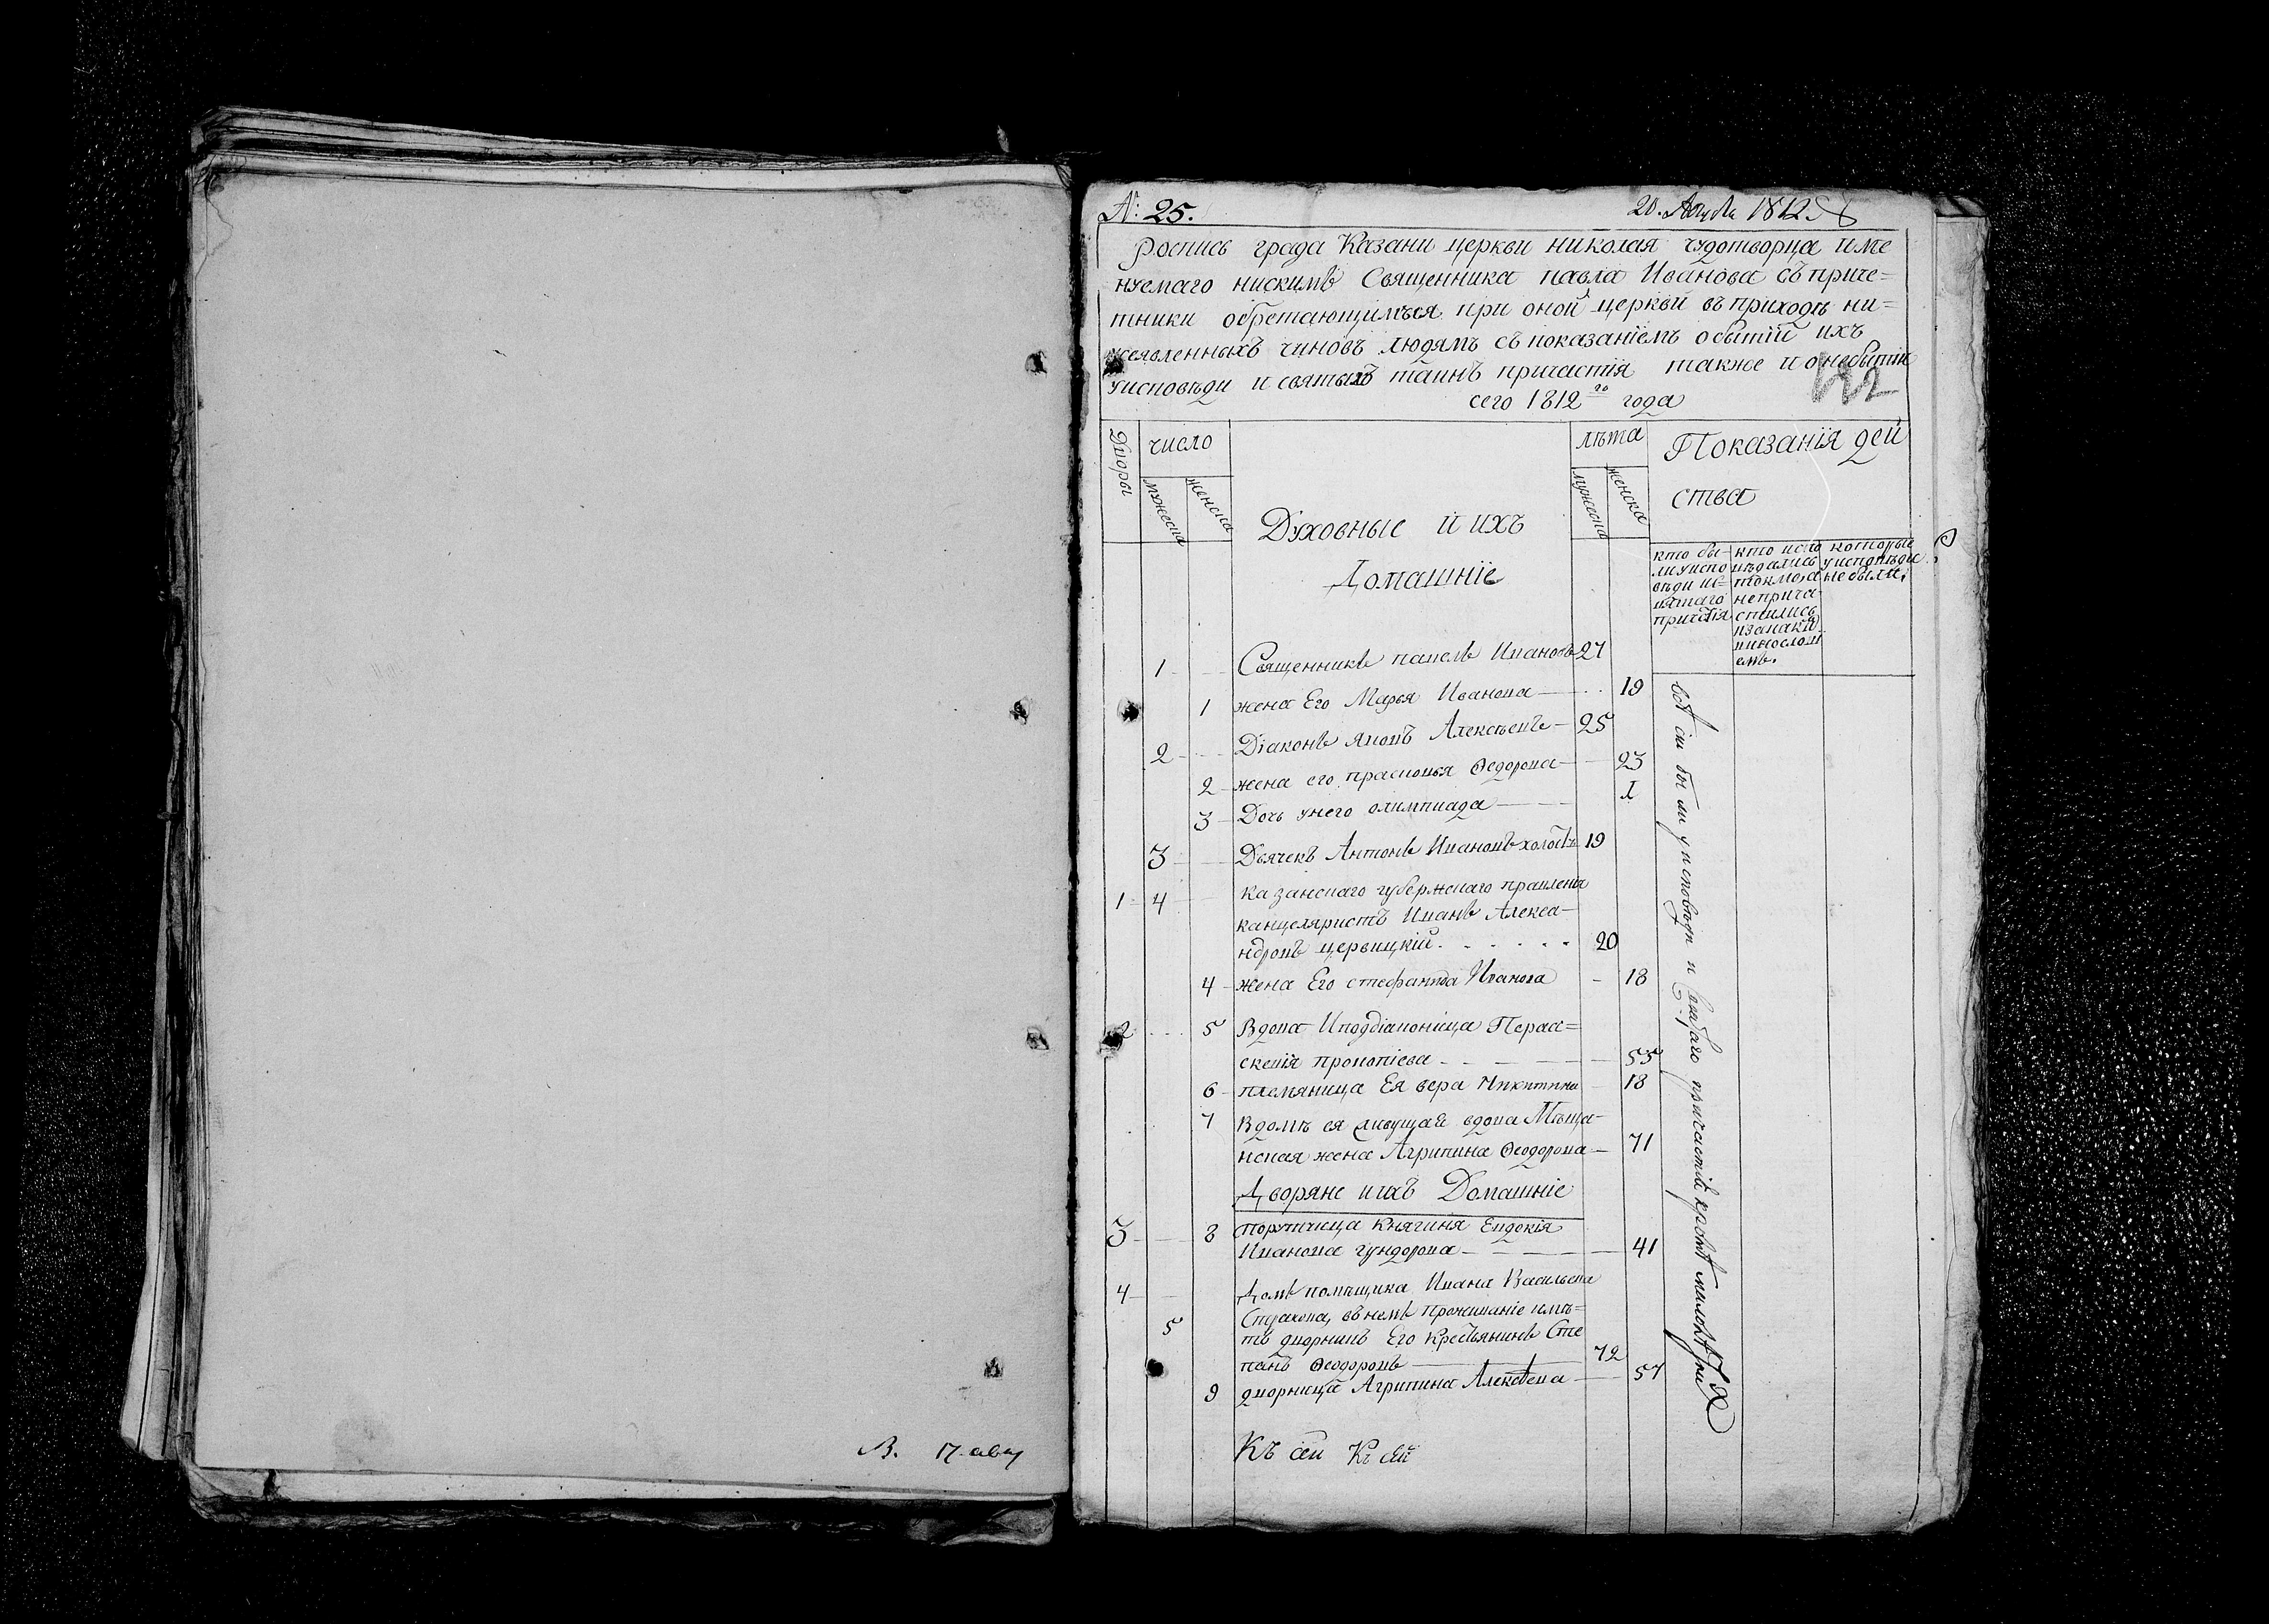 В. 17 авгу
№: 25.
20. 1812.
Роспись града Казани церкви николая чудотворца име
нуемаго нискимъ Священника павла Иванова съ приче=
тники обретающимъся при оной церкви въ приходѣ ни=
жеявленныхъ чиновъ людямъ съ показанiемъ о бытiи ихъ
уисповѣди и святыхъ таинъ причастiя также и о небытiи
сего 1812го года
Дворы
число
мужеска
женска
Духовные и ихъ
Домашнiе
лѣта
мужеска
женска
Показанiя дей
ства
кто бы-
ли уиспо
вѣди и с=
вятаго
кто испо
вѣдались
токмо, а
неприча-
стились
которые
уисповѣди
не были,
1 Священникъ павелъ Ивановъ 27
1 жена Его Марья Иванова 19
2 Дiаконъ Яковъ Алексѣевъ 25
2 жена его прасковья Ѳедорова 23
3 Дочь унего олимпиада 1
3 Дьячекъ Антонъ Ивановъ холостъ 19
1 4 казанскаго губернскаго правленiя
канцеляристъ Иванъ Алекса-
ндровъ 20
4 жена Его стефанида Иванова 18
2 5 Вдова Иподiаконица Пераа=
скевiя прокопiева 55
6 племяница Ея вера Никитина 18
7 Вдомѣ ея живущая вдова Мѣща-
нская жена Агрипина Ѳеодорова 71
Дворяне и ихъ Домашнiе
3 8 порутчица княгиня Евдокiя
Иванова гундорова 41
4 Домъ помѣщика Ивана Васильева
5 Страхова, въ немъ проживанiе имѣ=
тъ дворникъ Его крестьянинъ Сте
панъ Ѳеодоровъ 72
9 дворница Агрипина Алексѣева 57
Къ сей Къ сей